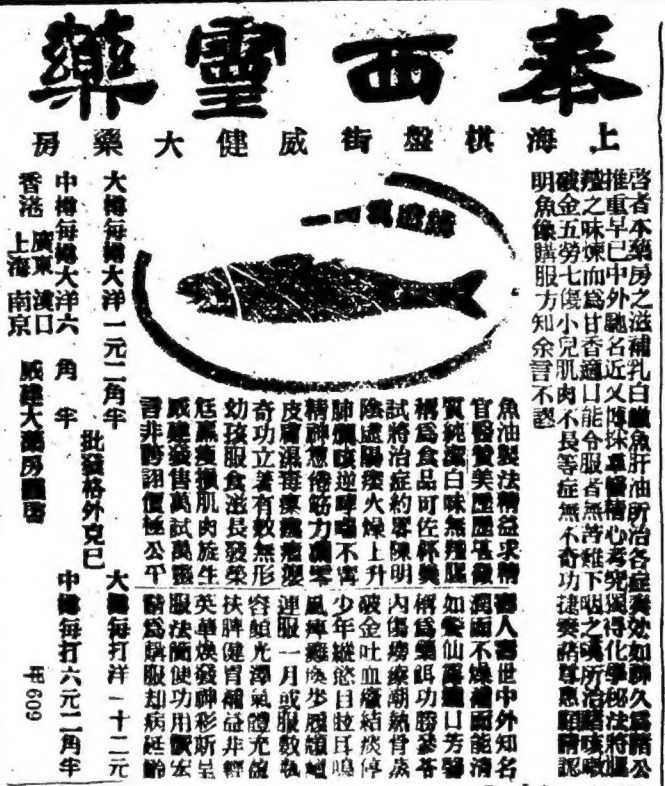 泰西靈藥
上海棋盤街威健大藥房
啓者本藥房之滋補乳白鰵魚肝油所治各症奏效如神久爲諸公
推重早已中外馳名近又博採羣醫精心考究獨得化學秘法將腥
之味煉而爲甘香適口能令服者無苦難下咽之所治咳嗽
破金五勞七傷小兒肌肉不長等症無不奇功捷奏諸尊惠顧請認
明魚像購服方知余言不謬
魚油製法精益求精
官醫贊美歷歷堪徵
質純潔白味無腥
稱爲食品可佐杯羹
試將治症約畧陳明
陰虛陽痿火燥上升
肺癆咳逆哮喘不寧
精神惫倦筋力
皮膚濕毒
奇功立著有效無形
幼孩服食滋長發榮
尪羸瘦損肌肉旋生
威建發售萬試萬靈
言非誇詡價極公平
壽人壽世中外知名
潤而不燥補而能清
如餐仙露口芳馨
稱爲藥餌功勝參苓
內傷癆瘵潮熱骨蒸
破金吐血痰結痰停
少年縱慾目眩耳鳴
風痺癱瘓步履
連服一月或服數瓶
容顏光澤氣體充盈
扶脾健胃補益非輕
英華煥發神彩斯呈
服法簡便功用宏
服却病延齡
大樽每樽大洋一元二角半
中樽每樽大洋六角半
批發格外克己
大樽每打洋一十二元
中樽每打六元二角半
香港 廣東 漢口
上海 南京
威建大藥房
甲609